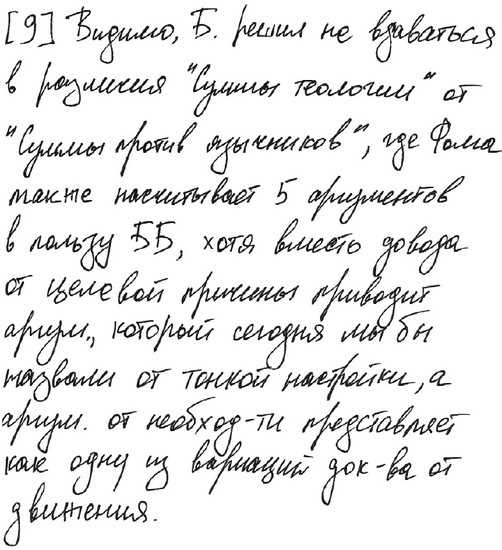 [9] Видимо, Б. решил не вдаваться
в различия "Суммы теологии" от
"Суммы против язычников", где Фома
также насчитывает 5 аргументов
в пользу ББ, хотя вместо довода
от целевой причины приводит
аргум., который сегодня мы бы
назвали от тонкой настройки, а
аргум. от необход-ти представляет
как одну из вариаций док-ва от
движения.